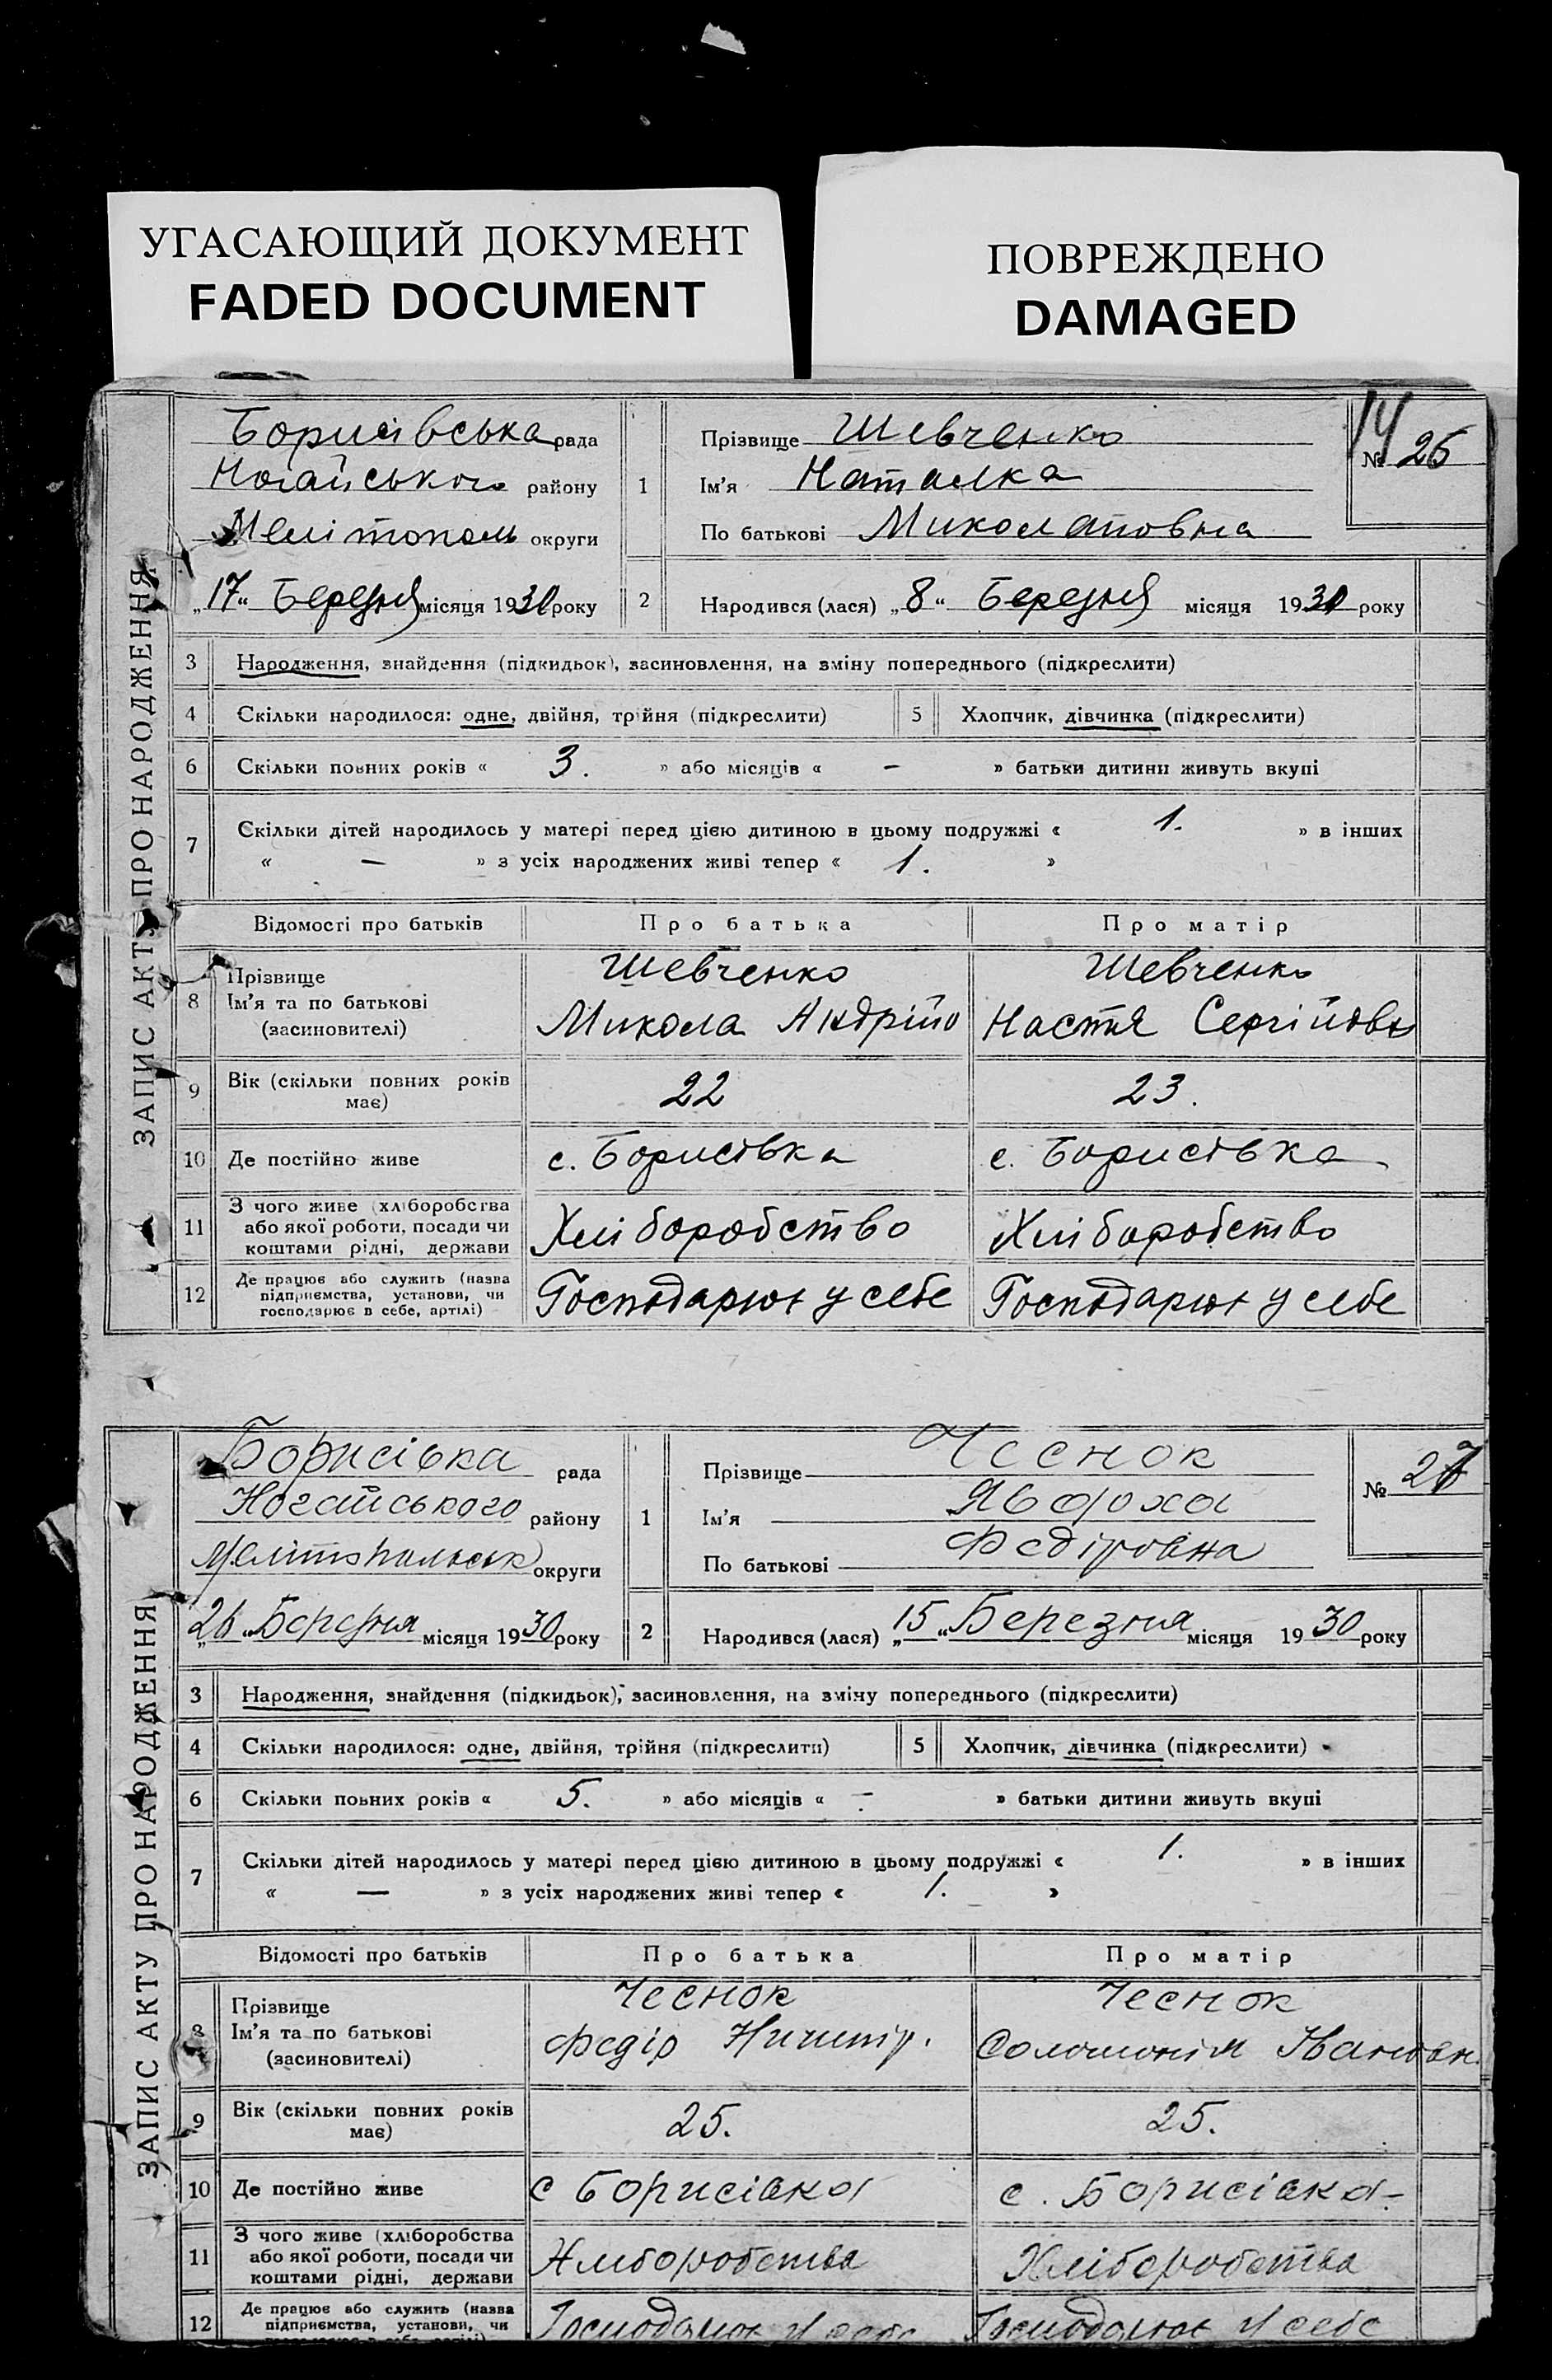 УГАСАЮЩИЙ ДОКУМЕНТ
FADED DOCUMENT
ПОВРЕЖДЕНО
DAMAGED
ЗАПИС АКТУ ПРО НАРОДЖЕННЯ
Борисівська рада
Ногайського району
Мелітополь округи
„17“ Березня місяця 1930 року
1
Прізвище Шевченко
Ім’я Наталка
По батькові Миколаповна
14
№ 26
2
Народився (лася) „8“ Березня місяця 1930 року
3 Народження, знайдення (підкидьок), засиновлення, на зміну попереднього (підкреслити)
4 Скільки народилося: одне, двійня, трійня (підкреслити) 5 Хлопчик, дівчинка (підкреслити)
6 Скільки повних років « 3. » або місяців « – » батьки дитини живуть вкупі
7 Скільки дітей народилось у матері перед цією дитиною в цьому подружжі « 1. » в інших
« — » з усіх народжених живі тепер « 1. »
Відомості про батьків Про батька Про матір
8 Прізвище Шевченко Шевченко
Ім’я та по батькові Микола Андрійо Настя Сергійовн
(засиновителі)
9 Вік (скільки повних років має) 22 23.
10 Де постійно живе с. Борисівка с. Борисівка
11 З чого живе (хліборобства або якої роботи, посади чи коштами рідні, держави Хліборобство Хліборобство
12 Де працює або служить (назва підприємства, установи, чи господарює в себе, артілі) Господарює у себе Господарює у себе
ЗАПИС АКТУ ПРО НАРОДЖЕННЯ
Борисівка рада
Ногайського району
Мелітопольськ округи
„26“ Березня місяця 1930 року
1
Прізвище Чеснок
Ім’я Явдоха
По батькові Федіровна
№ 27
2
Народився (лася) „15“ Березня місяця 1930 року
3 Народження, знайдення (підкидьок), засиновлення, на зміну попереднього (підкреслити)
4 Скільки народилося: одне, двійня, трійня (підкреслити) 5 Хлопчик, дівчинка (підкреслити)
6 Скільки повних років « 5. » або місяців « – » батьки дитини живуть вкупі
7 Скільки дітей народилось у матері перед цією дитиною в цьому подружжі « 1. » в інших
« — » з усіх народжених живі тепер « 1. »
Відомості про батьків Про батька Про матір
8 Прізвище Чеснок Чеснок
Ім’я та по батькові Федір Ничипір. Соломонія Івановн.
(засиновителі)
9 Вік (скільки повних років має) 25. 25.
10 Де постійно живе с Борисівка с. Борисівка
11 З чого живе (хліборобства або якої роботи, посади чи коштами рідні, держави Хліборобства Хліборобства
12 Де працює або служить (назва підприємства, установи, чи Господарює у себе Господарює у себе